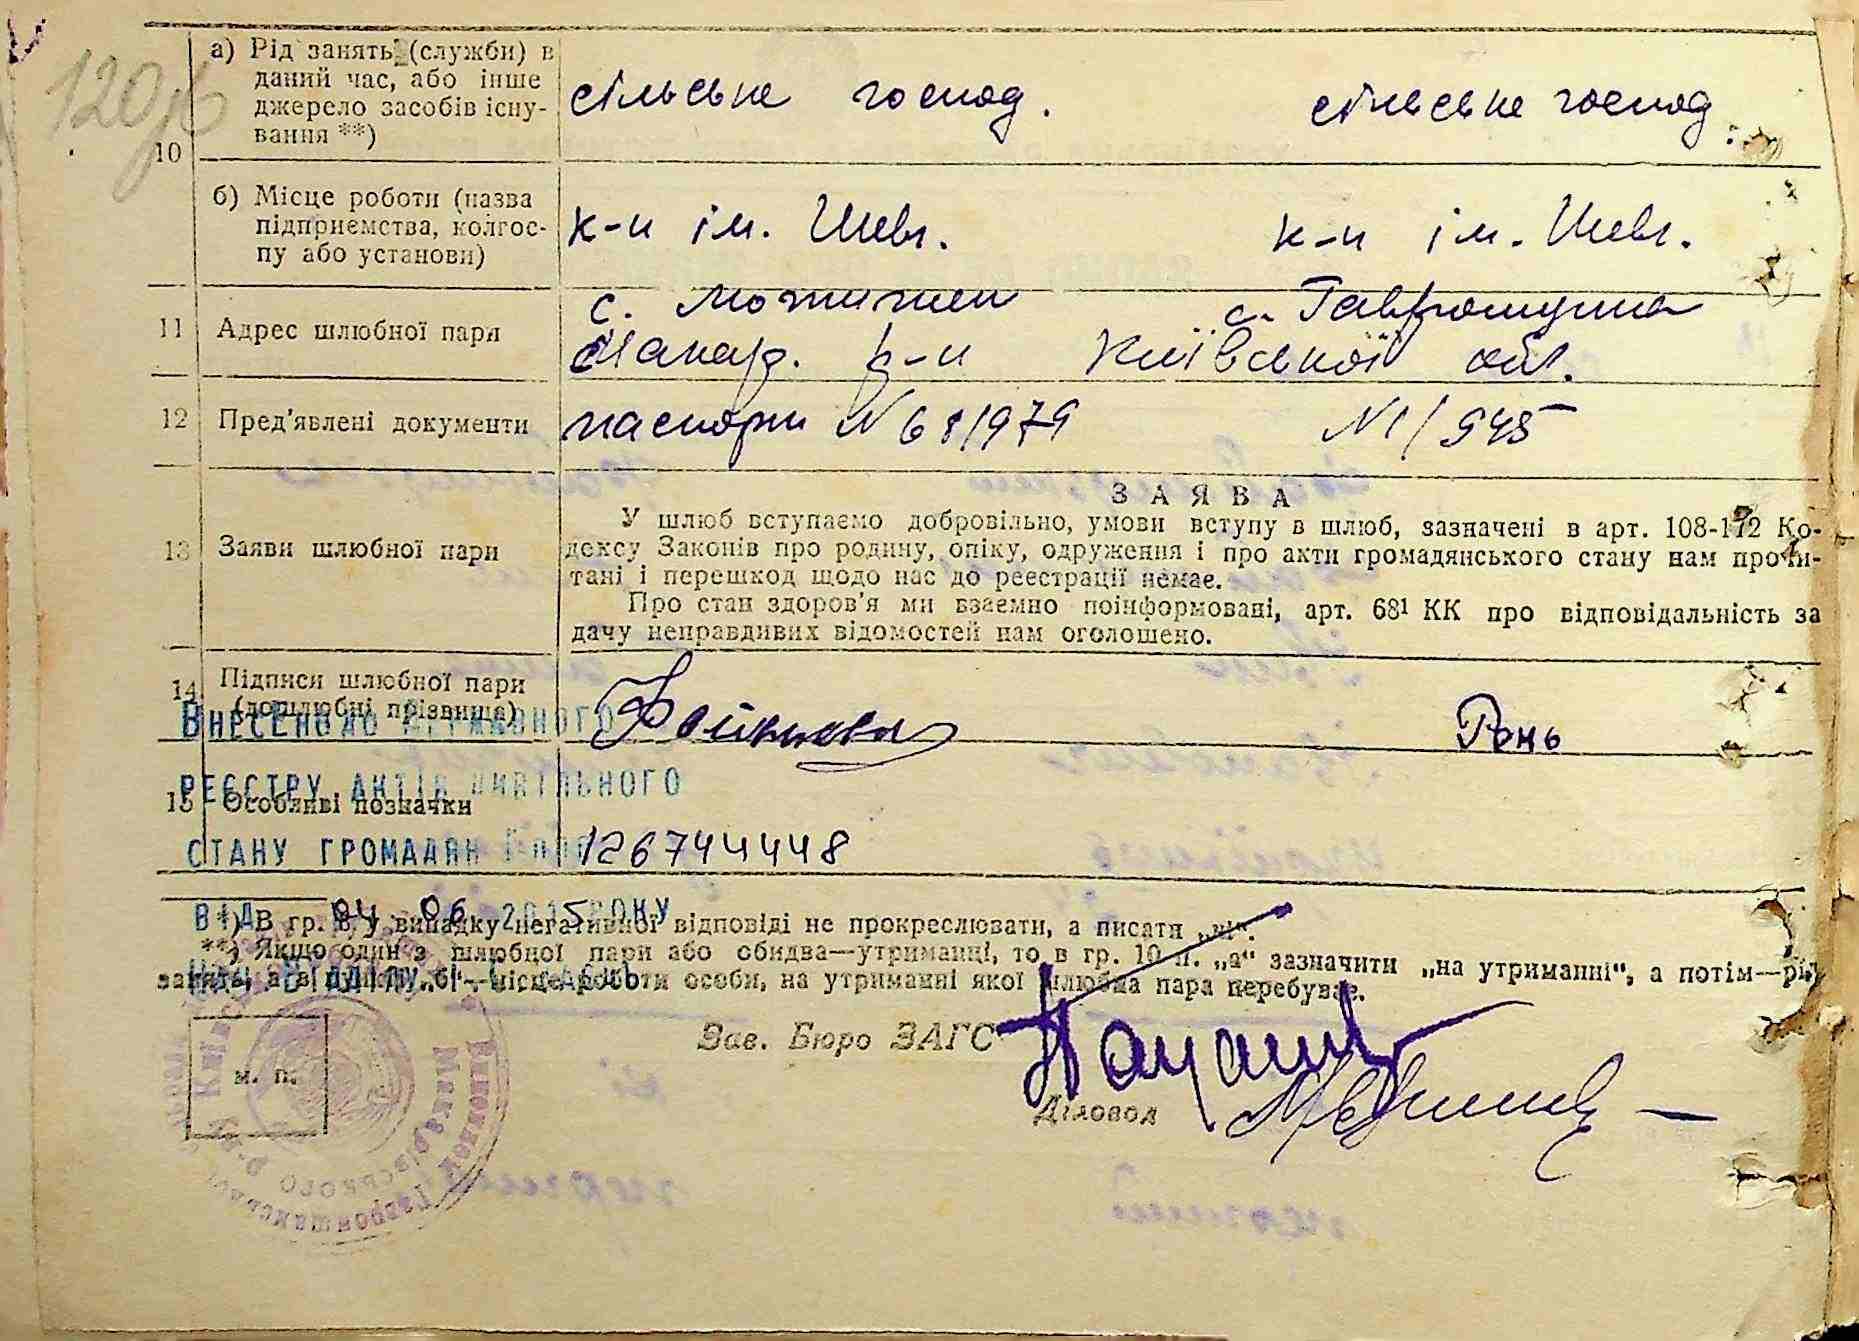 120
а) Рід занять (служби) в
даний час, або інше
джерело засобів існу-
вання **)
сільське господ. сільське господ.
10
б) Місце роботи (назва
підприємства, колгос-
пу або установи)
к-п ім. Шевч. к-п ім. Шевч.
11 Адрес шлюбної пари
с. Мотижин с. Гавронщина
Макар. р-н Київської обл.
12 Пред'явлені документи паспорти N 68/979 N1/945
13 Заяви шлюбної пари
ЗАЯВА
У шлюб вступаємо добровільно, умови вступу в шлюб, зазначені в арт. 108-172 Ко-
дексу Законів про родину, опіку, одруження і про акти громадянського стану нам прочи-
тані і перешкод щодо нас до реєстрації немає.
Про стан здоров'я ми взаємно поінформовані, арт. 68¹ КК про відповідальність за
дачу неправдивих відомостей нам оголошено.
14 Підписи шлюбної пари
(дошлюбні прізвища)
Рень
ВНЕСЕНО ДО ДЕРЖАВНОГО
РЕЄСТРУ АКТІВ ЦИВІЛЬНОГО
15 Особливі позначки
СТАНУ ГРОМАДЯН 126744448
ВІД 04 06 2015 РОКУ
*) В гр. 8, у випадку негативної відповіді не прокреслювати, а писати „ні“.
**) Якщо один з шлюбної пари або обидва—утриманці, то в гр. 10 п. „а“ зазначити „на утриманні“, а потім—рід
занять, а в пункті „б“—місце роботи особи, на утриманні якої шлюбна пара перебуває.
Зав. Бюро ЗАГС
м. п.
Діловод
Виконком Гавронщанської
Макарівського р-ну